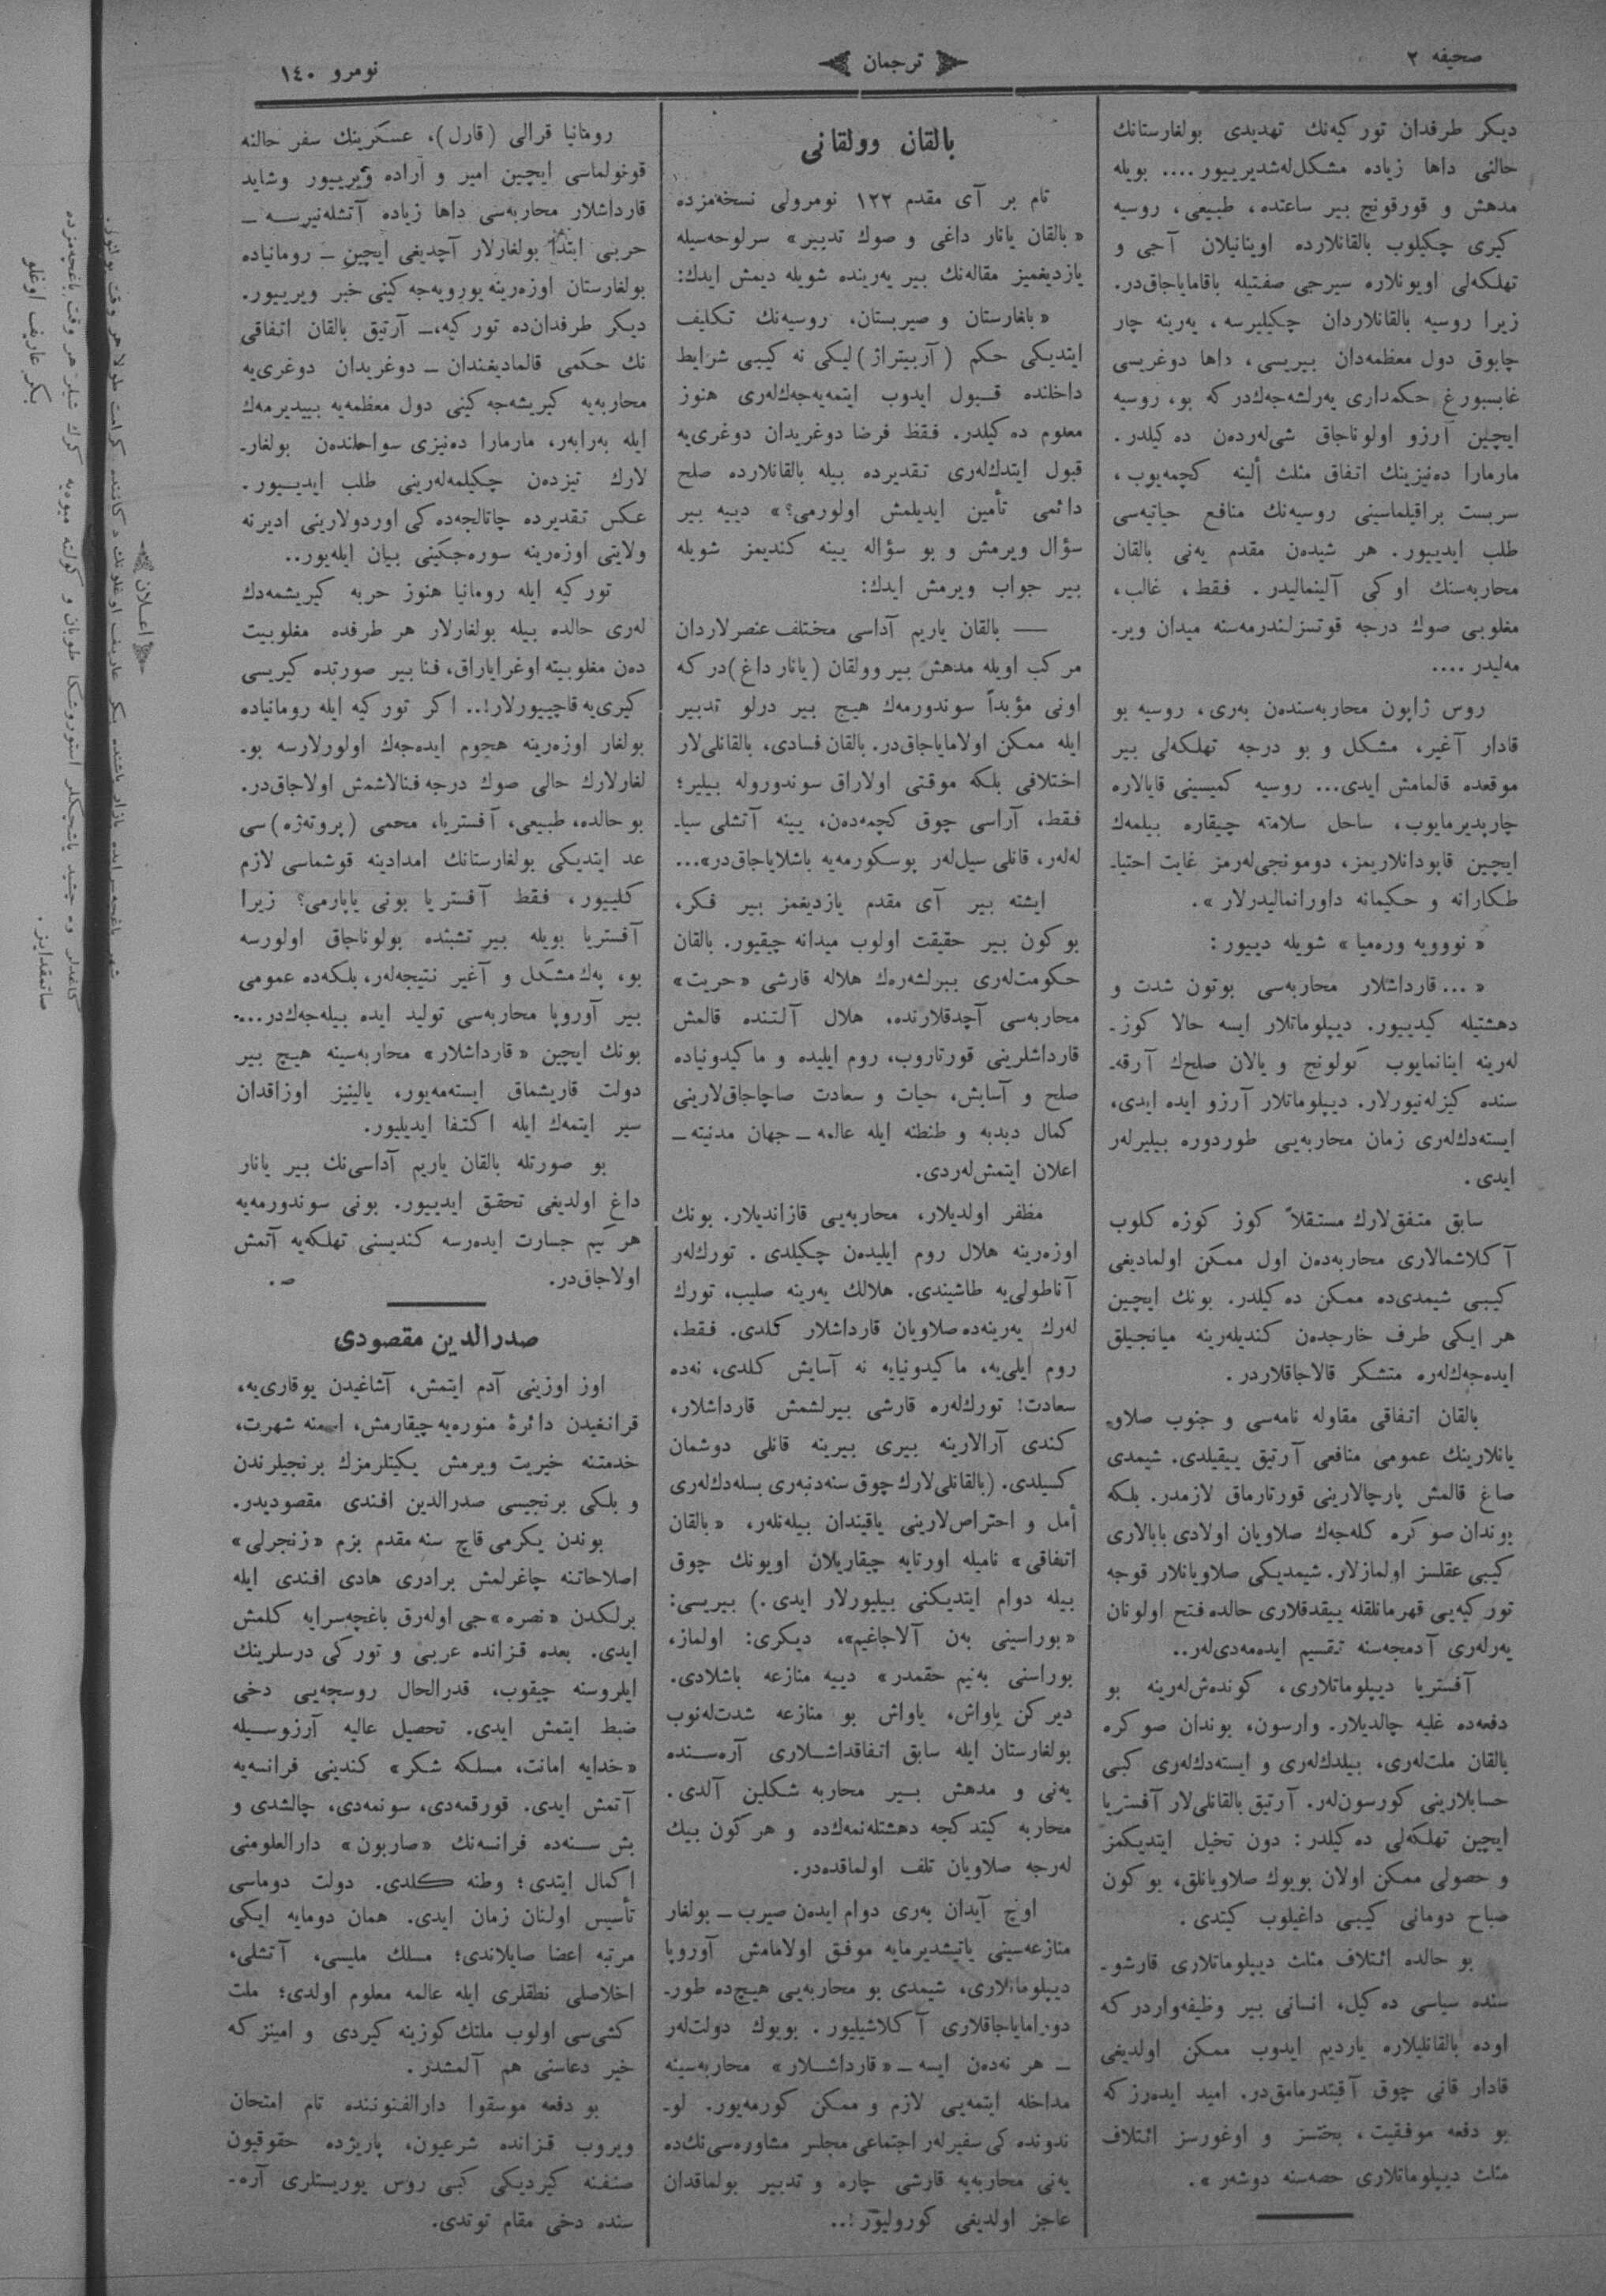 صحیفه ۲
ترجمان
نومرو ۱٤۰
دیكر طرفدان توركیه‌نك تهدیدی بولغارستانك
حالنی داها زیاده مشكل‌له‌شدیرییور.... بویله
مدهش و قورقونچ بیر ساعتده، طبیعی، روسیه
كیری چكیلوب بالقانلارده اوینانیلان آجی و
تهلكه‌لی اویونلاره سیرجی صفتیله باقامایاجاق‌در.
زیرا روسیه بالقانلاردان چكیلیرسه، یه‌رینه چار
چابوق دول معظمه‌دان بیریسی، داها دوغریسی
غابسبورغ حكمداری یه‌رلشه‌جه‌ك‌در كه بو، روسیه
ایچین آرزو اولوناجاق شی‌لەردەن ده كیلدر.
مارمارا ده‌نیزینك اتفاق مثلث ألینه كچمه‌یوب،
سربست براقیلماسینی روسیه‌نك منافع حیاتیه‌سی
طلب ایدییور. هر شیدەن مقدم یه‌نی بالقان
محاربه‌سنك اوكی آلینمالیدر. فقط، غالب،
مغلوبی صوك درجه قوتسزلندرمه‌سنه میدان ویر-
مه‌لیدر....
روس ژاپون محاربه‌سندەن به‌ری، روسیه بو
قادار آغیر، مشكل و بو درجه تهلكه‌لی بیر
موقعده قالمامش ایدی... روسیه كمیسینی قایالاره
چارپدیرمایوب، ساحل سلامته چیقاره بیلمه‌ك
ایچین قاپودانلاریمز، دومونجی‌لەرمز غایت احتیا-
طكارانه و حكیمانه داورانمالیدرلار».
«نوویه وره‌میا» شویله دییور:
«... قارداشلار محاربه‌سی بوتون شدت و
دهشتیله كیدییور. دیپلوماتلار ایسه حالا كوز-
لەرینه اینانمایوب كولونچ و یالان صلح‌ك آرقه-
سنده كیزله‌نیورلار. دیپلوماتلار آرزو ایده ایدی،
ایسته‌دك‌لەری زمان محاربه‌یی طوردوره بیلیرلەر
ایدی.
سابق متفق‌لارك مستقلاً كوز كوزه كلوب
آكلاشمالاری محاربه‌دەن اول ممكن اولمادیغی
كیبی شیمدی‌ده ممكن ده كیلدر. بونك ایچین
هر ایكی طرف خارجدەن كندیلەرینه میانجیلق
ایده‌جه‌ك‌لەره متشكر قالاجاقلاردر.
بالقان اتفاقی مقاوله نامه‌سی و جنوب صلاو
یانلارینك عمومی منافعی آرتیق ییقیلدی. شیمدی
صاغ قالمش پارچالارینی قورتارماق لازمدر. بلكه
بوندان صوكره كله‌جه‌ك صلاویان اولادی بابالاری
كیبی عقلسز اولمازلار. شیمدیكی صلاویانلار قوجه
توركیه‌یی قهرمانلقله ییقدقلاری حالده فتح اولونان
یه‌رلەری آدمجه‌سنه تقسیم ایده‌مه‌دی‌لەر..
آفستریا دیپلوماتلاری، كوندەش‌لەرینه بو
دفعه‌ده غلبه چالدیلار. وارسون، بوندان صوكره
بالقان ملت‌لەری، بیلدك‌لەری و ایسته‌دك‌لەری كبی
حسابلارینی كورسون‌لەر. آرتیق بالقانلی‌لار آفستریا
ایچین تهلكه‌لی ده كیلدر: دون تخیل ایتدیكمز
و حصولی ممكن اولان بویوك صلاویانلق، بو كون
صباح دومانی كیبی داغیلوب كیتدی.
بو حالده ائتلاف مثلث دیپلوماتلاری قارشو-
سنده سیاسی ده كیل، انسانی بیر وظیفه‌واردر كه
اوده بالقانلیلاره یاردیم ایدوب ممكن اولدیغی
قادار قانی چوق آقیتدرمامق‌در. امید ایدەرز كه
بو دفعه موفقیت، بختسز و اوغورسز ائتلاف
مثلث دیپلوماتلاری حصه‌سنه دوشەر».
بالقان وولقانی
تام بر آی مقدم ۱۲۲ نومرولی نسخه‌مزده
«بالقان یانار داغی و صوك تدبیر» سرلوحه‌سیله
یازدیغمیز مقاله‌نك بیر یه‌رینده شویله دیمش ایدك:
«بلغارستان و صیربستان، روسیه‌نك تكلیف
ایتدیكی حكم (آربیتراژ) لیكی نه كیبی شرایط
داخلنده قبول ایدوب ایتمه‌یه‌جه‌ك‌لەری هنوز
معلوم ده كیلدر. فقط فرضا دوغریدان دوغری‌یه
قبول ایتدك‌لەری تقدیرده بیله بالقانلارده صلح
دائمی تأمین ایدیلمش اولورمی؟» دییه بیر
سؤال ویرمش و بو سؤاله یینه كندیمز شویله
بیر جواب ویرمش ایدك:
— بالقان یاریم آداسی مختلف عنصرلاردان
مركب اویله مدهش بیر وولقان (یانار داغ) در كه
اونی مؤبداً سوندورمه‌ك هیچ بیر درلو تدبیر
ایله ممكن اولامایاجاق‌در. بالقان فسادی، بالقانلی‌لار
اختلافی بلكه موقتی اولاراق سوندوروله بیلیر؛
فقط، آراسی چوق كچمه‌دەن، یینه آتشلی سیا-
لەلەر، قانلی سیل‌لەر پوسكورمه‌یه باشلایاجاق‌در»...
ایشته بیر آی مقدم یازدیغمز بیر فكر،
بو كون بیر حقیقت اولوب میدانه چیقیور. بالقان
حكومت‌لەری بیرلشەرەك هلاله قارشی «حریت»
محاربه‌سی آچدقلارنده، هلال آلتنده قالمش
قارداشلرینی قورتاروب، روم ایلیده و ماكیدونیاده
صلح و آسایش، حیات و سعادت صاچاجاق‌لارینی
كمال دبدبه و طنطنه ایله عالمه — جهان مدنیته —
اعلان ایتمش‌لەردی.
مظفر اولدیلار، محاربه‌یی قازاندیلار. بونك
اوزەرینه هلال روم ایلیدەن چكیلدی. تورك‌لەر
آناطولی‌یه طاشیندی. هلالك یه‌رینه صلیب، تورك
لەرك یه‌رینه‌ده صلاویان قارداشلار كلدی. فقط،
روم ایلی‌یه، ماكیدونیایه نه آسایش كلدی، نه‌ده
سعادت! تورك‌لەره قارشی بیرلشمش قارداشلار،
كندی آرالارینه بیری بیرینه قانلی دوشمان
كسیلدی. (بالقانلی‌لارك چوق سنه‌دنبەری بسله‌دك‌لەری
أمل و احتراص‌لارینی یاقیندان بیله‌نلەر، «بالقان
اتفاقی» نامیله اورتایه چیقاریلان اویونك چوق
بیله دوام ایتدیكنی بیلیورلار ایدی.) بیریسی:
«بوراسینی بەن آلاجاغیم»، دیكری: اولماز،
بوراسنی بەنیم حقمدر» دییه منازعه باشلادی.
دیركن یاواش، یاواش بو منازعه شدت‌له‌نوب
بولغارستان ایله سابق اتفاقداشلاری آره‌سنده
یه‌نی و مدهش بیر محاربه شكلین آلدی.
محاربه كیتدكجه دهشتله‌نمه‌كده و هر كون بیك
لەرجه صلاویان تلف اولماقده‌در.
اوچ آیدان به‌ری دوام ایدەن صیرب — بولغار
منازعه‌سینی یاتیشدیرمایه موفق اولامامش آوروپا
دیپلوماتلاری، شیمدی بو محاربه‌یی هیچ‌ده طور-
دورامایاجاقلاری آكلاشیلیور. بویوك دولت‌لەر
— هر نه‌دەن ایسه — «قارداشلار» محاربه‌سینه
مداخله ایتمه‌یی لازم و ممكن كورمه‌یور. لو-
ندونده كی سفیرلەر اجتماعی مجلس مشاوره‌سی‌نك‌ده
یه‌نی محاربه‌یه قارشی چاره و تدبیر بولماقدان
عاجز اولدیغی كورولیور!..
رومانیا قرالی (قارل)، عسكرینك سفر حالنه
قونولماسی ایچین امیر و اراده ویرییور وشاید
قارداشلار محاربه‌سی داها زیاده آتشله‌نیرسه —
حربی ابتدا بولغارلار آچدیغی ایچین — رومانیاده
بولغارستان اوزەرینه یورویه‌جه كینی خبر ویرییور.
دیكر طرفدان‌ده توركیه، — آرتیق بالقان اتفاقی
نك حكمی قالمادیغندان — دوغریدان دوغری‌یه
محاربه‌یه كیریشه‌جه كینی دول معظمه‌یه بییدیرمه‌ك
ایله بەرابەر، مارمارا ده‌نیزی سواحلندەن بولغار-
لارك تیزدەن چكیلمه‌لەرینی طلب ایدییور.
عكس تقدیرده چاتالجه‌ده كی اوردولارینی ادیرنه
ولایتی اوزەرینه سوره‌جكینی بیان ایله‌یور..
توركیه ایله رومانیا هنوز حربه كیریشمه‌دك
لەری حالده بیله بولغارلار هر طرفده مغلوبیت
دەن مغلوبیته اوغرایاراق، فنا بیر صورتده كیریسی
كیری‌یه قاچییورلار!.. اكر توركیه ایله رومانیاده
بولغار اوزەرینه هجوم ایده‌جه‌ك اولورلارسه بو-
لغارلارك حالی صوك درجه فنالاشمش اولاجاق‌در.
بو حالده، طبیعی، آفستریا، محمی (پروته‌ژه) سی
عد ایتدیكی بولغارستانك امدادینه قوشماسی لازم
كلییور، فقط آفستریا بونی یاپارمی؟ زیرا
آفستریا بویله بیر تشبثده بولوناجاق اولورسه
بو، په‌ك مشكل و آغیر نتیجه‌لەر، بلكه‌ده عمومی
بیر آوروپا محاربه‌سی تولید ایده بیله‌جه‌ك‌در...
بونك ایچین «قارداشلار» محاربه‌سینه هیچ بیر
دولت قاریشماق ایسته‌مه‌یور، یالینیز اوزاقدان
سیر ایتمه‌ك ایله اكتفا ایدیلیور.
بو صورتله بالقان یاریم آداسی‌نك بیر یانار
داغ اولدیغی تحقق ایدییور. بونی سوندورمه‌یه
هر كیم جسارت ایدەرسه كندیسنی تهلكه‌یه آتمش
اولاجاق‌در.    ص.
صدرالدین مقصودی
اوز اوزینی آدم ایتمش، آشاغیدن یوقاری‌یه،
قرانغیدن دائرۀ منوره‌یه چیقارمش، اسمنه شهرت،
خدمتنه خیریت ویرمش یكیتلرمزك برنجیلرندن
و بلكی برنجیسی صدرالدین افندی مقصودیدر.
بوندن یكرمی قاچ سنه مقدم بزم «زنجرلی»
اصلاحاتنه چاغرلمش برادری هادی افندی ایله
برلكدن «نصره» جی اوله‌رق باغچه‌سرایه كلمش
ایدی. بعده قزانده عربی و توركی درسلرینك
ایلروسنه چیقوب، قدرالحال روسچه‌یی دخی
ضبط ایتمش ایدی. تحصیل عالیه آرزوسیله
«خدایه امانت، مسلكه شكر» كندینی فرانسه‌یه
آتمش ایدی. قورقمه‌دی، سونمه‌دی، چالشدی و
بش سنه‌ده فرانسه‌نك «صاربون» دارالعلومنی
اكمال ایتدی؛ وطنه كلدی. دولت دوماسی
تأسیس اولنان زمان ایدی. همان دومایه ایكی
مرتبه اعضا صایلاندی؛ مسلك ملیسی، آتشلی،
اخلاصلی نطقلری ایله عالمه معلوم اولدی؛ ملت
كشی‌سی اولوب ملتك كوزینه كیردی و امینز كه
خیر دعاسنی هم آلمشدر.
بو دفعه موسقوا دارالفنوننده تام امتحان
ویروب قزانده شرعیون، پاریژده حقوقیون
صنفنه كیردیكی كبی روس یوریستلری آره-
سنده دخی مقام توتدی.
اعلان
بكر عاریف اوغلو